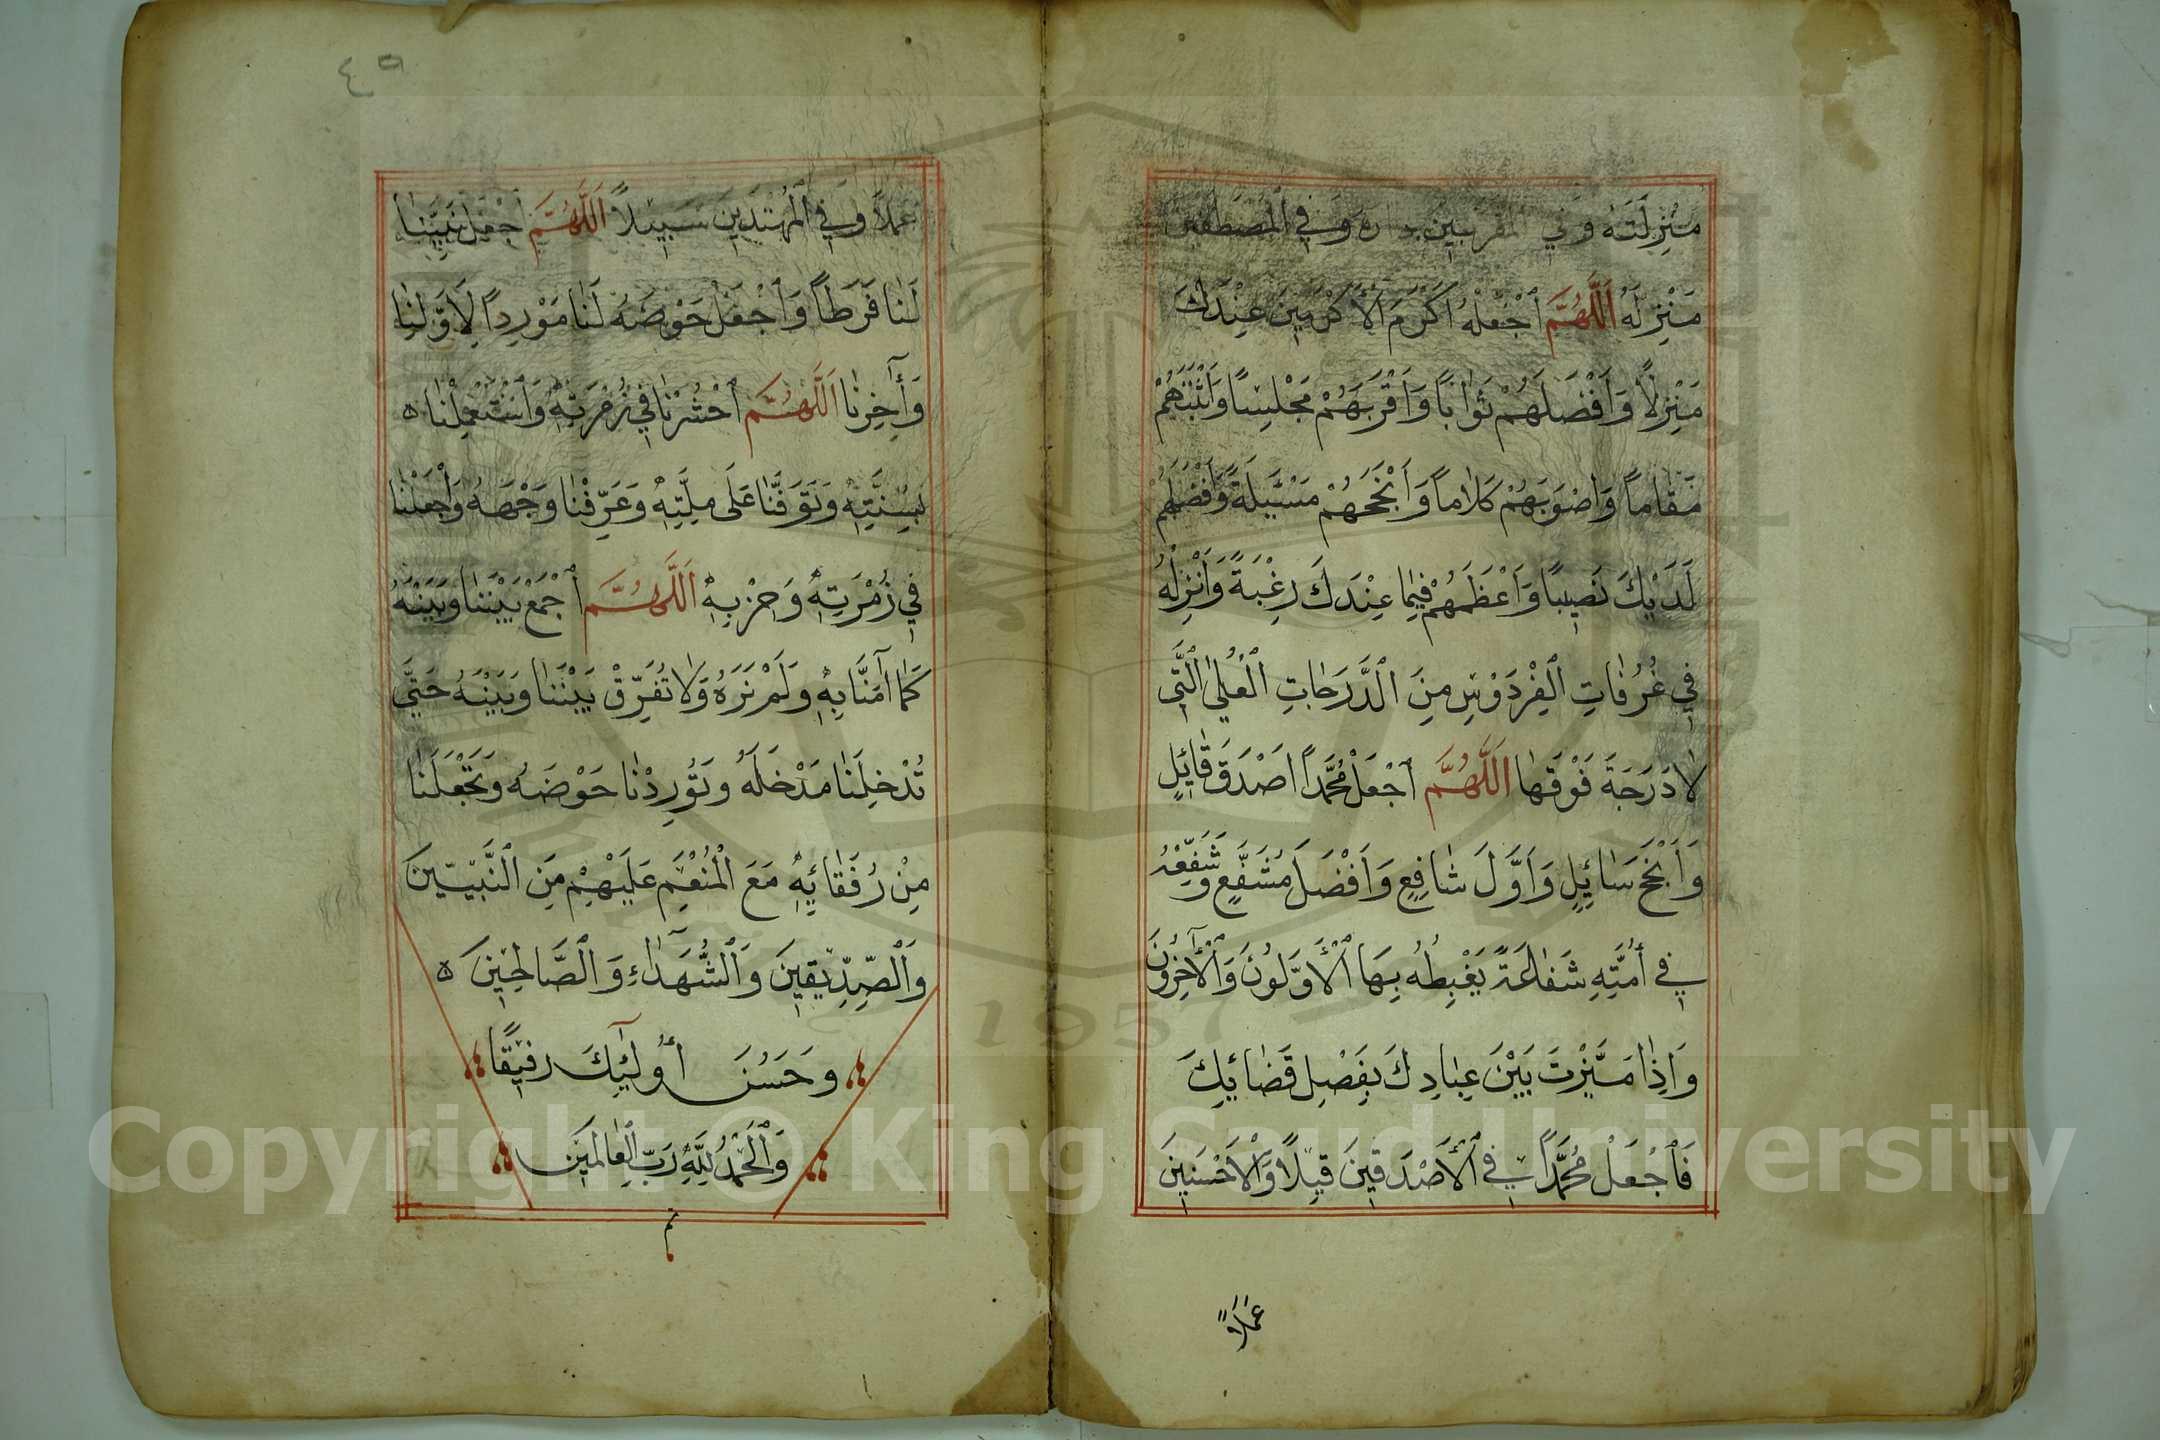 مَنْزِلَتَهُ وَفِي المقربين داره وَفِي الْمُصْطَفَيْنَ
مَنْزِلَهُ اَللّٰهُمَّ ٱجْعَلْهُ اَكْرَمَ الْأَكْرَمِينَ عِنْدَكَ
مَنْزِلًا وَاَفْضَلَهُمْ ثَوٰابًا وَاَقْرَبَهُمْ مَجْلِسًا وَاَثْبَتَهُمْ
مَقٰامًا وَاَصْوَبَهُمْ كَلٰامًا وَاَنْجَحَهُمْ مَسْئَلَةً وَاَفْضَلَهُمْ
لَدَيْكَ نَصِيبًا وَاَعْظَمَهُمْ فِيمٰا عِنْدَكَ رِغْبَةً وَاَنْزِلْهُ
فِي غُرُفٰاتِ الْفِرْدَوْسِ مِنَ الدَّرَجٰاتِ الْعُلٰى الَّتِي
لٰا دَرَجَةَ فَوْقَهٰا اَللّٰهُمَّ ٱجْعَلْ مُحَمَّدًا اَصْدَقَ قٰائِلٍ
وَاَنْجَحَ سٰائِلٍ وَاَوَّلَ شٰافِعٍ وَاَفْضَلَ مُشَفَّعٍ وَشَفِّعْهُ
فِي أُمَّتِهِ شَفٰاعَةً يَغْبِطُهُ بِهَا الْأَوَّلُونَ وَالْآخِرُونَ
وَاِذٰا مَيَّزْتَ بَيْنَ عِبٰادِكَ بِفَصْلِ قَضٰائِكَ
فَٱجْعَلْ مُحَمَّدًا فِي الْأَصْدَقِينَ قِيلًا وَالْأَحْسَنِينَ
عَمَلًا
٤٥
عَمَلًا وَفِي الْمُهْتَدِينَ سَبِيلًا اَللّٰهُمَّ ٱجْعَلْ نَبِيَّنٰا
لَنٰا فَرَطًا وَٱجْعَلْ حَوْضَهُ لَنٰا مَوْرِدًا لِاَوَّلِنٰا
وَآٰخِرِنٰا اَللّٰهُمَّ ٱحْشُرْنٰا فِي زُمْرَتِهِ وَاسْتَعْمِلْنٰا ه
بِسُنَّتِهِ وَتَوَفَّنٰا عَلَى مِلَّتِهِ وَعَرِّفْنٰا وَجْهَهُ وَاجْعَلْنٰا
فِي زُمْرَتِهِ وَحِزْبِهِ اَللّٰهُمَّ ٱجْمَعْ بَيْنَنٰا وَبَيْنَهُ
كَمٰا آمَنَّا بِهِ وَلَمْ نَرَهُ وَلٰا تُفَرِّقْ بَيْنَنٰا وَبَيْنَهُ حَتّٰى
تُدْخِلَنٰا مَدْخَلَهُ وَتُورِدْنٰا حَوْضَهُ وَتَجْعَلَنٰا
مِنْ رُفَقٰائِهِ مَعَ الْمُنْعَمِ عَلَيْهِمْ مِنَ النَّبِيِّينَ
وَالصِّدِّيقِينَ وَالشُّهَدٰاءِ وَالصَّالِحِينَ ه
وَحَسُنَ أُولٰئِكَ رَفِيقًا
وَالْحَمْدُ لِلّٰهِ رَبِّ الْعٰالَمِينَ
تم
Copyright © King Saud University
1957